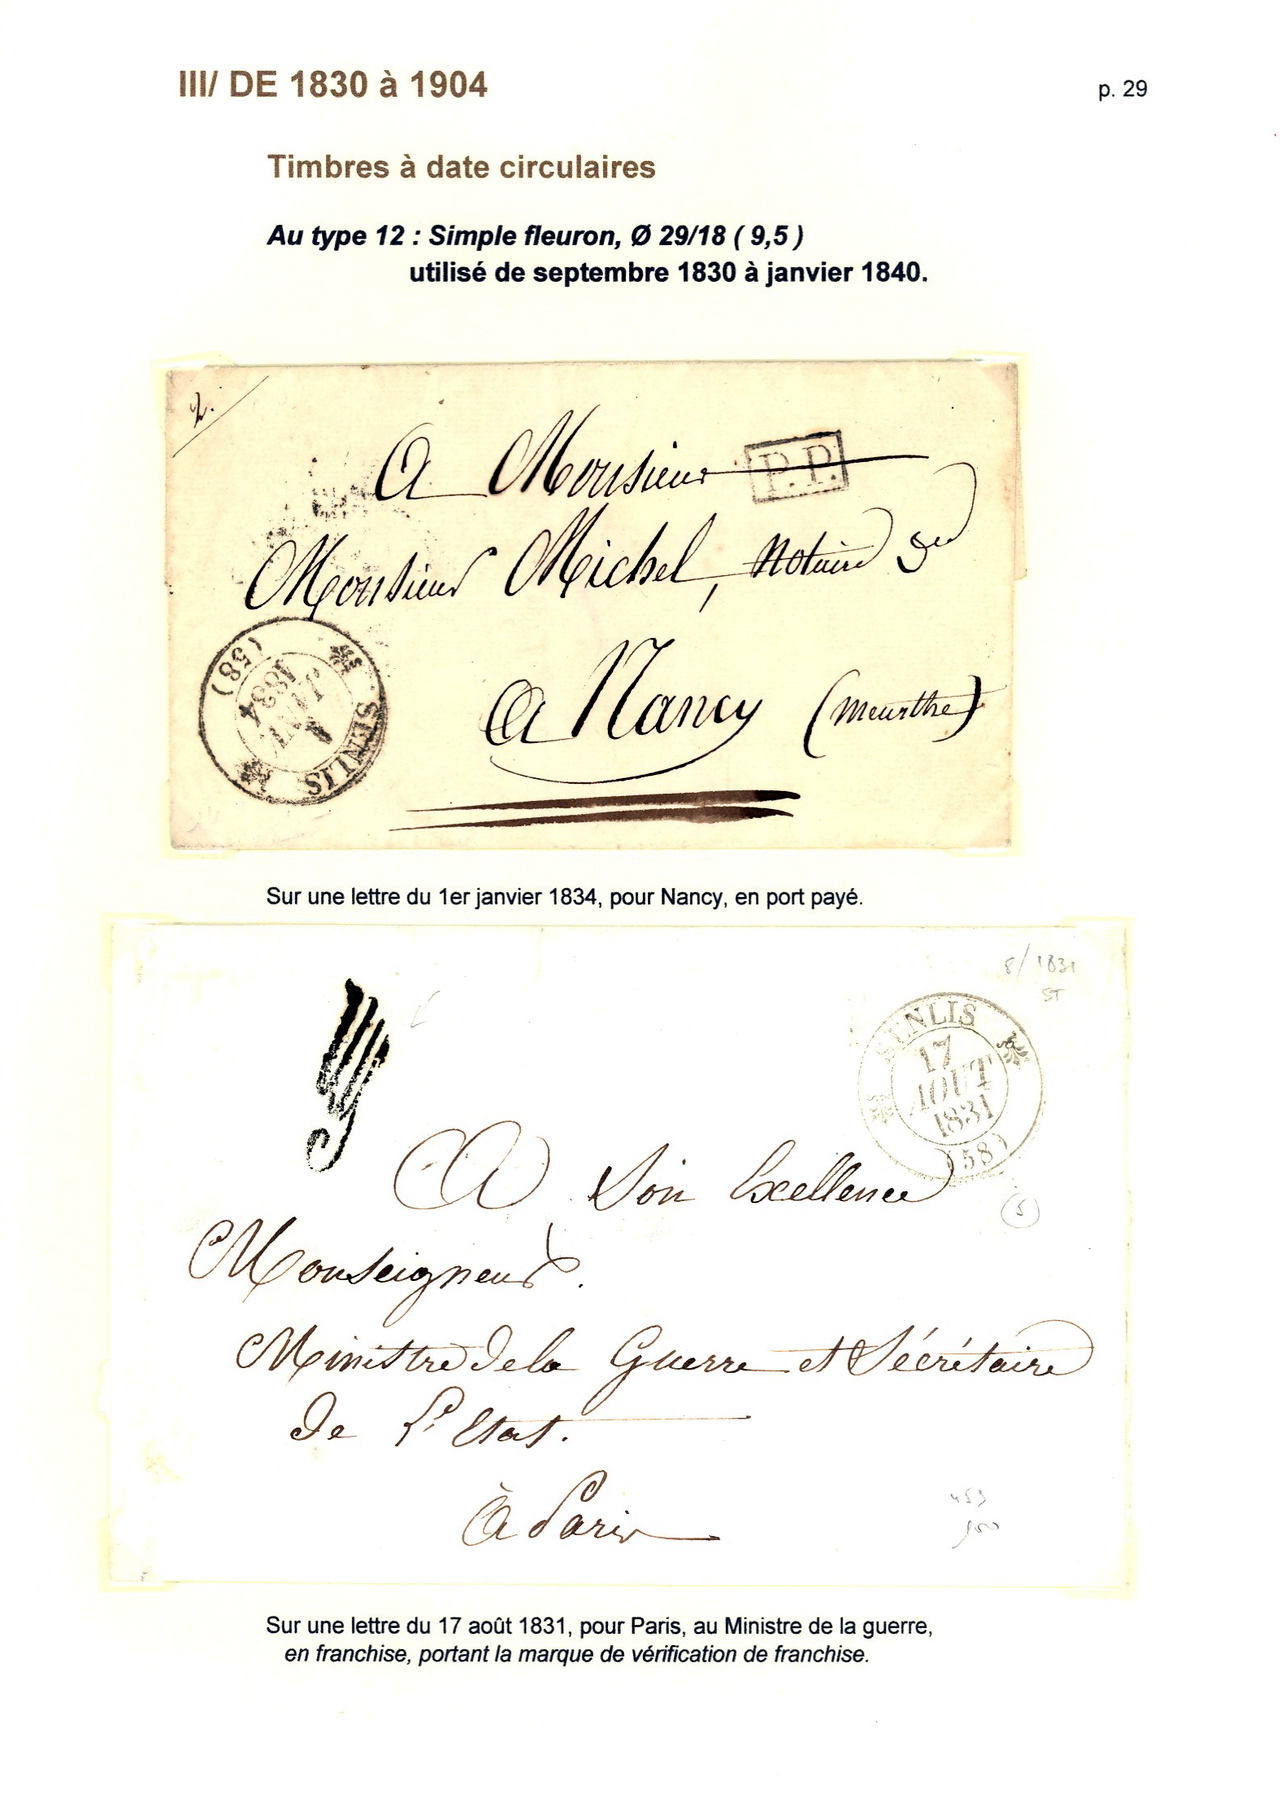 III/ DE 1830 à 1904
p. 29
Timbres à date circulaires
Au type 12 : Simple fleuron, Ø 29/18 ( 9,5 )
utilisé de septembre 1830 à janvier 1840.
2.
A Monsieur
P.P.
Monsieur Michel, Notaire
A Nancy (Meurthe)
SENLIS
1
JANV
1834
(58)
Sur une lettre du 1er janvier 1834, pour Nancy, en port payé.
8/1831
ST
SENLIS
17
AOUT
1831
(58)
5
A Son Excellence
Monseigneur.
Ministre de la Guerre et Sécrétaire
de l'Etat.
à Paris
Sur une lettre du 17 août 1831, pour Paris, au Ministre de la guerre,
en franchise, portant la marque de vérification de franchise.